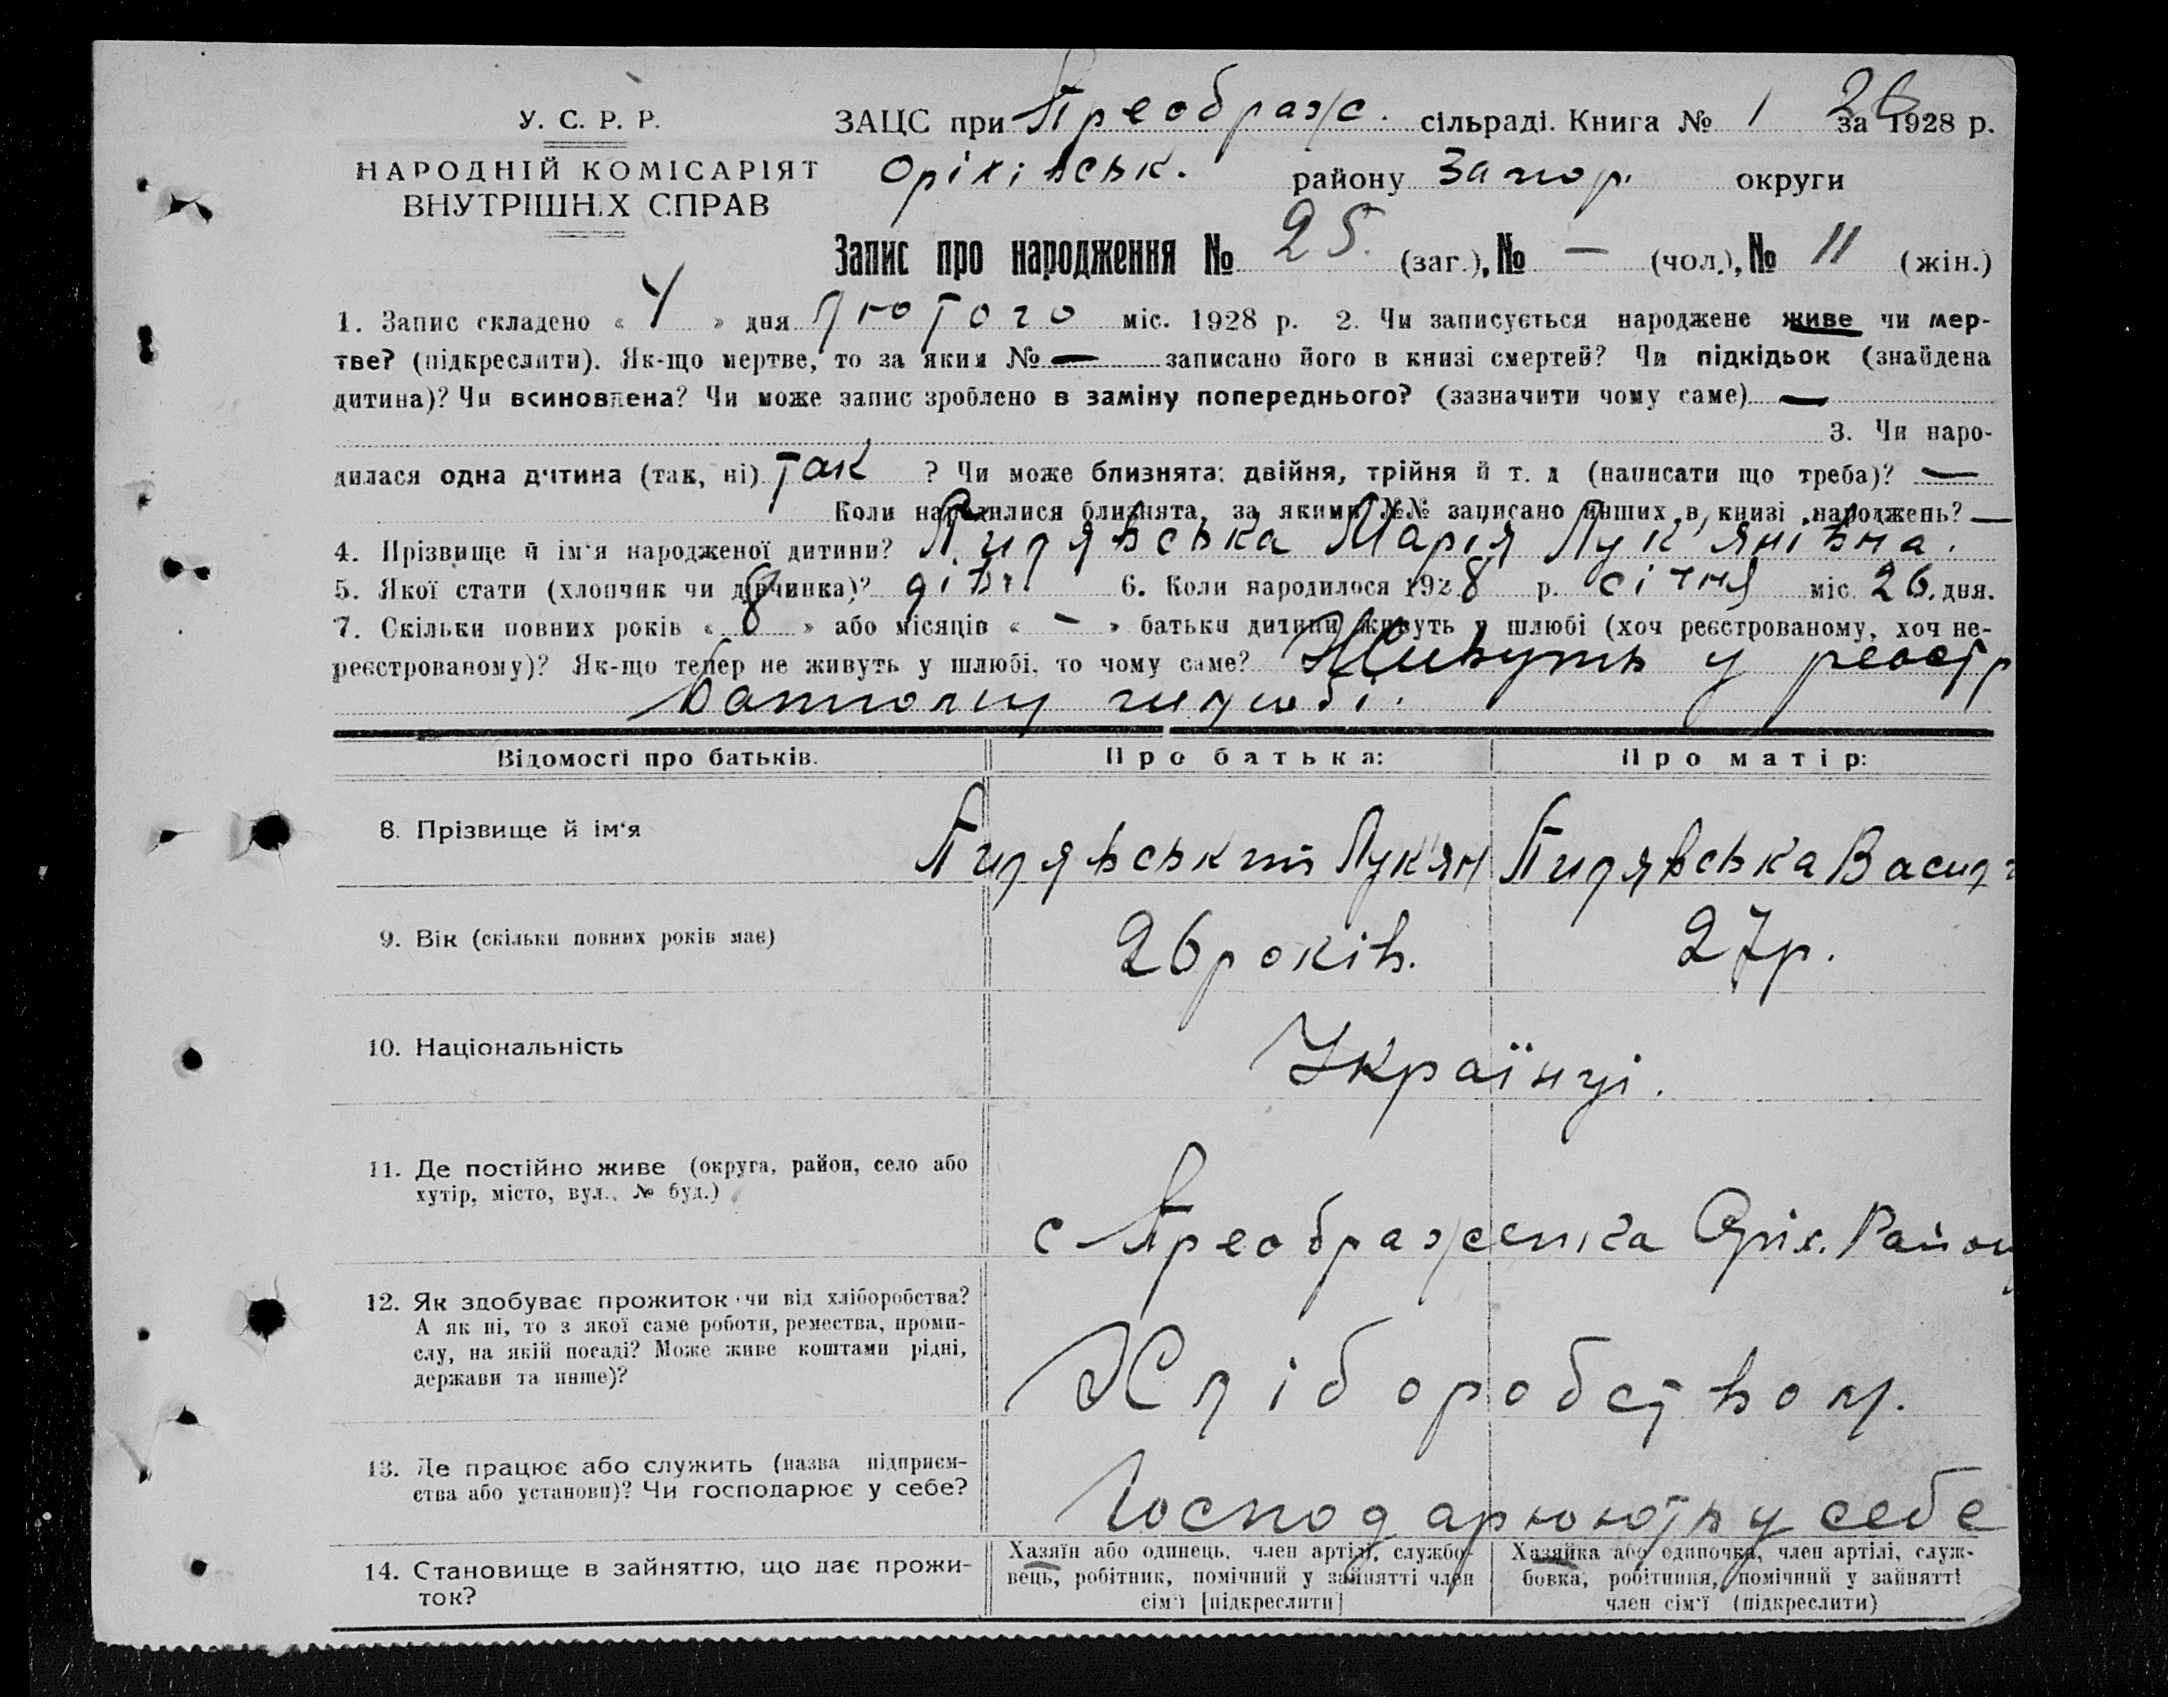 У. С. Р. Р.
НАРОДНІЙ КОМІСАРІЯТ
ВНУТРІШНІХ СПРАВ
ЗАЦС при Преображ. сільраді. Книга № 1 за 1928 р.
26
Оріхівськ. району Запор. округи
Запис про народження № 25. (заг.), № — (чол.), № 11 (жін.)
1. Запис складено « 4 » дня лютого міс. 1928 р. 2. Чи записується народжене живе чи мер-
тве? (підкреслити). Як-що мертве, то за яким № — записано його в книзі смертей? Чи підкідьок (знайдена
дитина)? Чи всиновлена? Чи може запис зроблено в заміну попереднього? (зазначити чому саме) —
3. Чи наро-
дилася одна дитина (так, ні) так ? Чи може близнята: двійня, трійня й т. д (написати що треба)? —
Коли народилися близнята, за якими №№ записано инших в книзі народжень? —
4. Прізвище й ім'я народженої дитини? Пилявська Марія Лук'янівна.
5. Якої стати (хлопчик чи дівчинка)? дівч. 6. Коли народилося 1928 р. січня міс. 26. дня.
7. Скільки повних років « 8 » або місяців « — » батьки дитини живуть у шлюбі (хоч реєстрованому, хоч не-
реєстрованому)? Як-що тепер не живуть у шлюбі, то чому саме? Живуть у реєстр
ватному шлюбі.
Відомості про батьків.
Про батька:
Про матір:
8. Прізвище й ім'я
Пилявський Лук'ян
Пилявська
9. Вік (скільки повних років має)
26 років.
27 р.
10. Національність
Українці.
11. Де постійно живе (округа, район, село або
хутір, місто, вул., № буд.)
с Преображенка Оріх. Району
12. Як здобуває прожиток чи від хліборобства?
А як ні, то з якої саме роботи, ремества, проми-
слу, на якій посаді? Може живе коштами рідні,
держави та инше)?
Хліборобством.
13. Де працює або служить (назва підприєм-
ства або установи)? Чи господарює у себе?
Господарюють у себе
14. Становище в зайняттю, що дає прожи-
ток?
Хазяїн або одинець, член артілі, службо-
вець, робітник, помічний у зайнятті член
сім'ї [підкреслити]
Хазяйка або одиночка, член артілі, служ-
бовка, робітниця, помічний у зайнятті
член сім'ї (підкреслити)